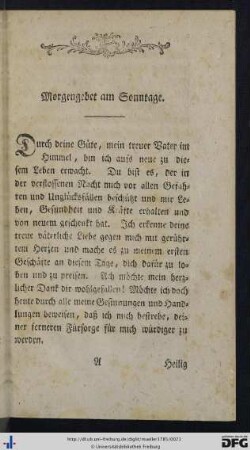 Morgengebet am Sonntage.
Durch deine Güte, mein treuer Vater im
Himmel, bin ich aufs neue zu die-
sem Leben erwacht. Du bist es, der in
der verflossenen Nacht mich vor allen Gefah-
ren und Unglücksfällen beschützt und mir Le-
ben, Gesundheit und Kräfte erhalten und
von neuem geschenkt hat. Ich erkenne deine
treue väterliche Liebe gegen mich mit gerühr-
tem Herzen und mache es zu meinem ersten
Geschäfte an diesem Tage, dich dafür zu lo-
ben und zu preisen. Ach möchte mein herz-
licher Dank dir wohlgefallen! Möchte ich doch
heute durch alle meine Gesinnungen und Hand-
lungen beweisen, daß ich mich bestrebe, dei-
ner ferneren Fürsorge für mich würdiger zu
werden.
A Heilig
© Universitätsbibliothek Freiburg